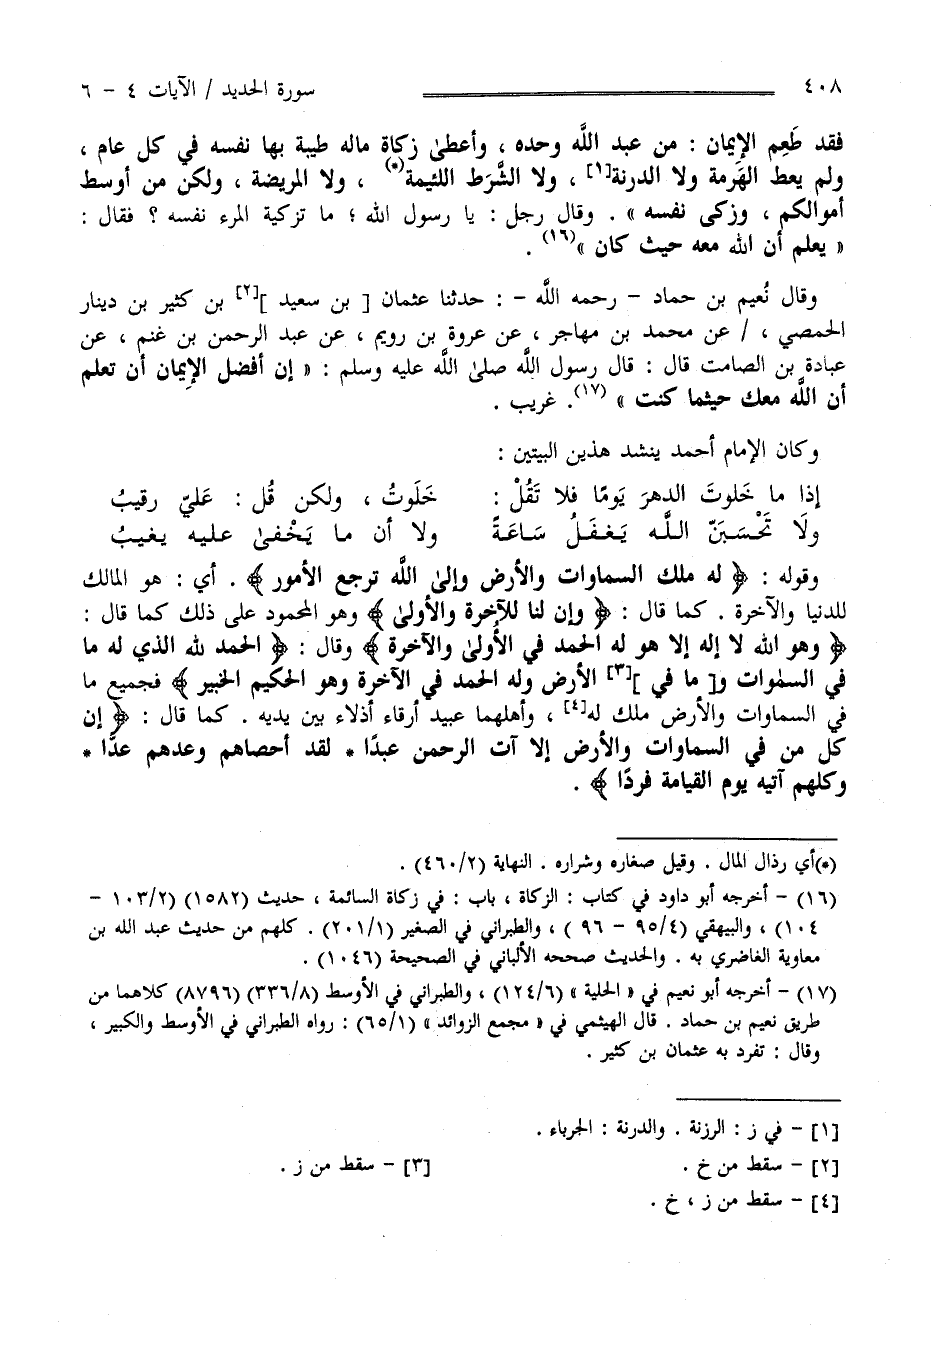 ٤٠٨ سورة الحديد / الآيات ٤ - ٦
فقد طَعِم الإيمان : من عبد اللَّه وحده ، وأعطىٰ زكاة ماله طيبة بها نفسه في كل عام ،
ولم يعط الهَرِمة ولا الدرنة[١] ، ولا الشَّرَط اللئيمة(*) ، ولا المريضة ، ولكن من أوسط
أموالكم ، وزكى نفسه » . وقال رجل : يا رسول الله ؛ ما تزكية المرء نفسه ؟ فقال :
« يعلم أن الله معه حيث كان »(١٦) .
وقال نُعيم بن حماد - رحمه اللَّه - : حدثنا عثمان [ بن سعيد ][٢] بن كثير بن دينار
الحمصي ، / عن محمد بن مهاجر ، عن عروة بن رويم ، عن عبد الرحمن بن غنم ، عن
عبادة بن الصامت قال : قال رسول اللَّه صلىٰ اللَّه عليه وسلم : « إن أفضل الإيمان أن تعلم
أن اللَّه معك حيثما كنت » (١٧). غريب .
وكان الإمام أحمد ينشد هذين البيتين :
إذا ما خَلوتَ الدهرَ يَومًا فلا تَقُلْ : خَلَوتُ ، ولكن قُل : عَليّ رقيبُ
ولَا تَحْسَبَنّ اللَّه يَغفَلُ سَاعَةً ولا أن ما يَخْفىٰ عليه يغيبُ
وقوله : ﴿ له ملك السماوات والأرض وإلىٰ اللَّه ترجع الأمور ﴾ . أي : هو المالك
للدنيا والآخرة . كما قال : ﴿ وإن لنا للآخرة والأولىٰ ﴾ وهو المحمود على ذلك كما قال :
﴿ وهو الله لا إله إلا هو له الحمد في الأولىٰ والآخرة ﴾ وقال : ﴿ الحمد لله الذي له ما
في السمٰوات و[ ما في ][٣] الأرض وله الحمد في الآخرة وهو الحكيم الخبير ﴾ فجميع ما
في السماوات والأرض ملك له[٤] ، وأهلهما عبيد أرقاء أذلاء بين يديه . كما قال : ﴿ إن
كل من في السماوات والأرض إلا آت الرحمن عبدًا * لقد أحصاهم وعدهم عدًّا *
وكلهم آتيه يوم القيامة فردًا ﴾ .
(*)أي رذال المال . وقيل صغاره وشراره . النهاية (٤٦٠/٢) .
(١٦) - أخرجه أبو داود في كتاب : الزكاة ، باب : في زكاة السائمة ، حديث (١٥٨٢) (١٠٣/٢ -
١٠٤) ، والبيهقي (٩٥/٤ - ٩٦ ) ، والطبراني في الصغير (٢٠١/١) . كلهم من حديث عبد الله بن
معاوية الغاضري به . والحديث صححه الألباني في الصحيحة (١٠٤٦) .
(١٧) - أخرجه أبو نعيم في « الحلية » (١٢٤/٦) ، والطبراني في الأوسط (٣٣٦/٨) (٨٧٩٦) كلاهما من
طريق نعيم بن حماد . قال الهيثمي في « مجمع الزوائد » (٦٥/١) : رواه الطبراني في الأوسط والكبير ،
وقال : تفرد به عثمان بن كثير .
[١] - في ز : الرزنة . والدرنة : الجرباء .
[٢] - سقط من خ . [٣] - سقط من ز .
[٤] - سقط من ز ، خ .